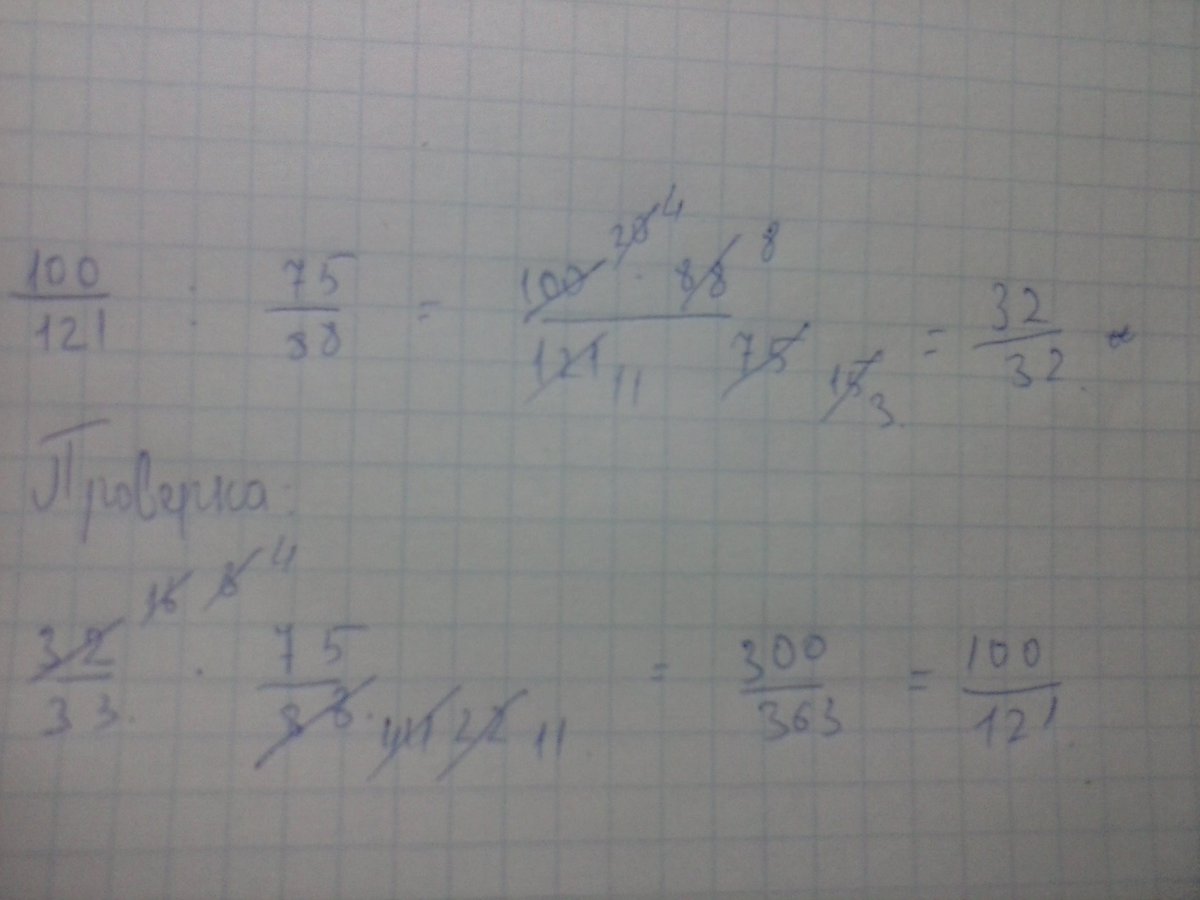 100/121 : 75/88 = 100 20 4 · 88 8 / 121 11 75 15 3 = 32/32
Проверка:
32 16 8 4 / 33 · 75 / 88 44 22 11 = 300/363 = 100/121